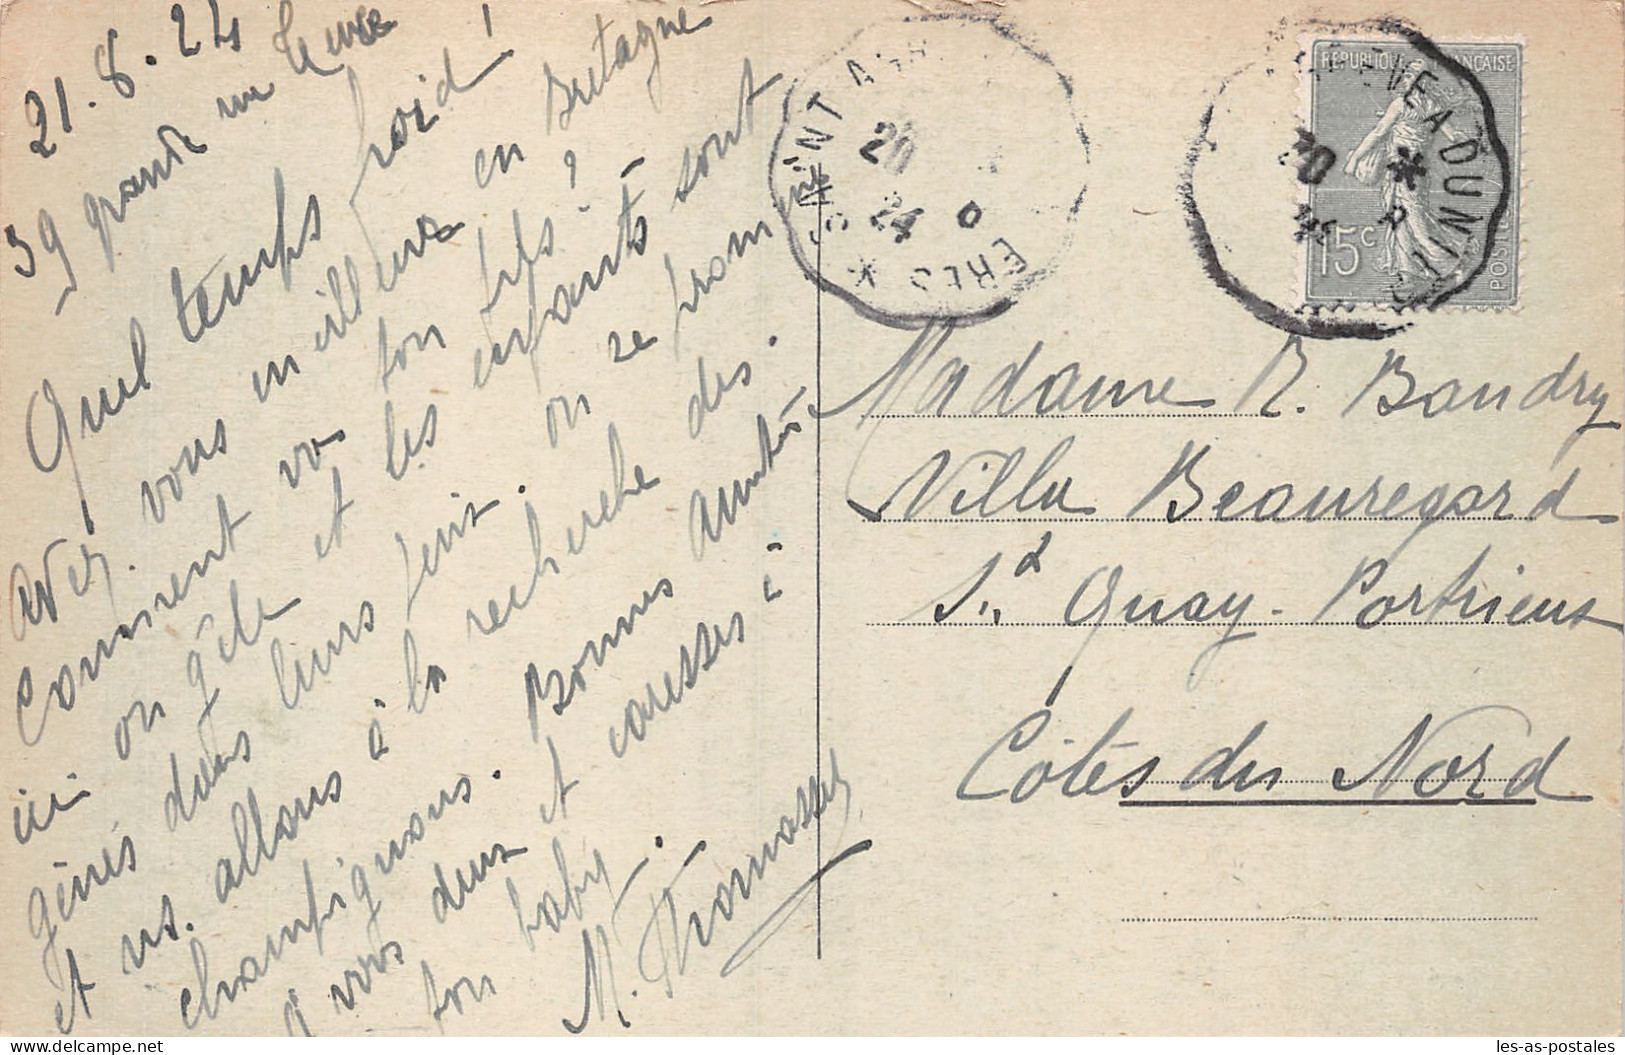 21.8.24
59 grande rue
Quel temps froid !
Avez vous meilleur en Bretagne
Comment va ton fils ?
ici on gèle et les enfants sont
gênés dans leurs jeux. on se promène
et ns. allons à la recherche des
champignons. Bonnes amitiés
à vous deux et caresses à
ton baby.
M. Thomasset
SAINT AGR
ERES *
20
24
REPUBLIQUE FRANÇAISE
15c
POSTES
Madame R. Baudry
Villa Beauregard
St Quay-Portrieux
Côtes du Nord
les-as-postales
www.delcampe.net